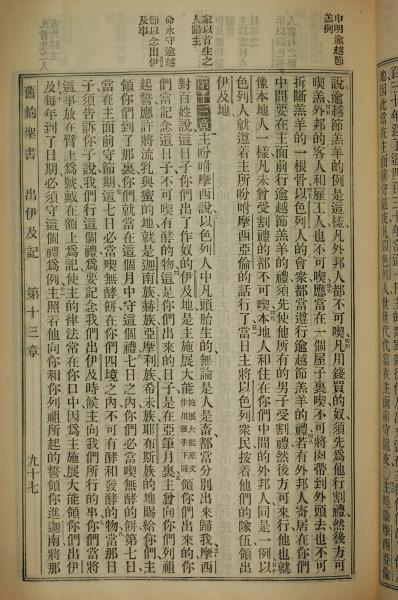 申明逾越節
羔例
說、逾越節羔羊的例是這樣、凡外邦人都不可喫、凡用錢買的奴須先為他行割禮、然後方可
喫羔、外邦的客人和雇工人、俱不可喫、應當在一個屋子裏喫、不可將肉帶到外頭去、也不可
折斷羔羊的一根骨、以色列人的會衆都當遵行逾越節羔羊的禮、若有外邦人寄居在你們
中間、要在主面前行逾越節羔羊的禮、須先使他所有的男子受割禮、然後方可來行、他也就
像本地人一樣、凡未曾受割禮的都不可喫、本地人和住在你們中間的外邦人同是一例、以
色列人就遵着主所吩咐摩西亞倫的話行了、當日主將以色列衆民按着他們的隊伍領出
伊及地、
當以首生之
人歸主
第十三章 主吩咐摩西說、以色列人中凡頭胎生的、無論是人是畜都當分別出來歸我、摩西
對百姓說、這日子你們出了作奴的伊及地、是主施展大能 施展大能原文作用強手下同 領你們出來的、你
命永守逾越
節以念出伊
及事
們當記念這日子、不可喫有酵的物、這是你們出來的日子、是在亞筆月裏、主曾向你們列祖
起誓應許將流乳與蜜的地、就是迦南族赫族亞摩利族希未族耶布斯族的地賜給你們、主
領你們到了那裏、你們就當在這個月中守這個禮、七日之內、你們必當喫無酵的餅、第七日
當在主面前守節期、這七日必當喫無酵餅、在你們四境之內不可有酵和發酵的物、當那日
子、須告訴你子說、我們行這個禮、為要記念我們出伊及時候、主向我們所行的事、你們當將
這事放在臂上為號、戴在額上為記、使主的律法常在你口中、因為主施展大能領你們出伊
及、每年到了日期必須守這個禮為例、主照着他向你和你列祖所起的誓、領你進迦南、將那
舊約聖書 出伊及記 第十三章 九十七